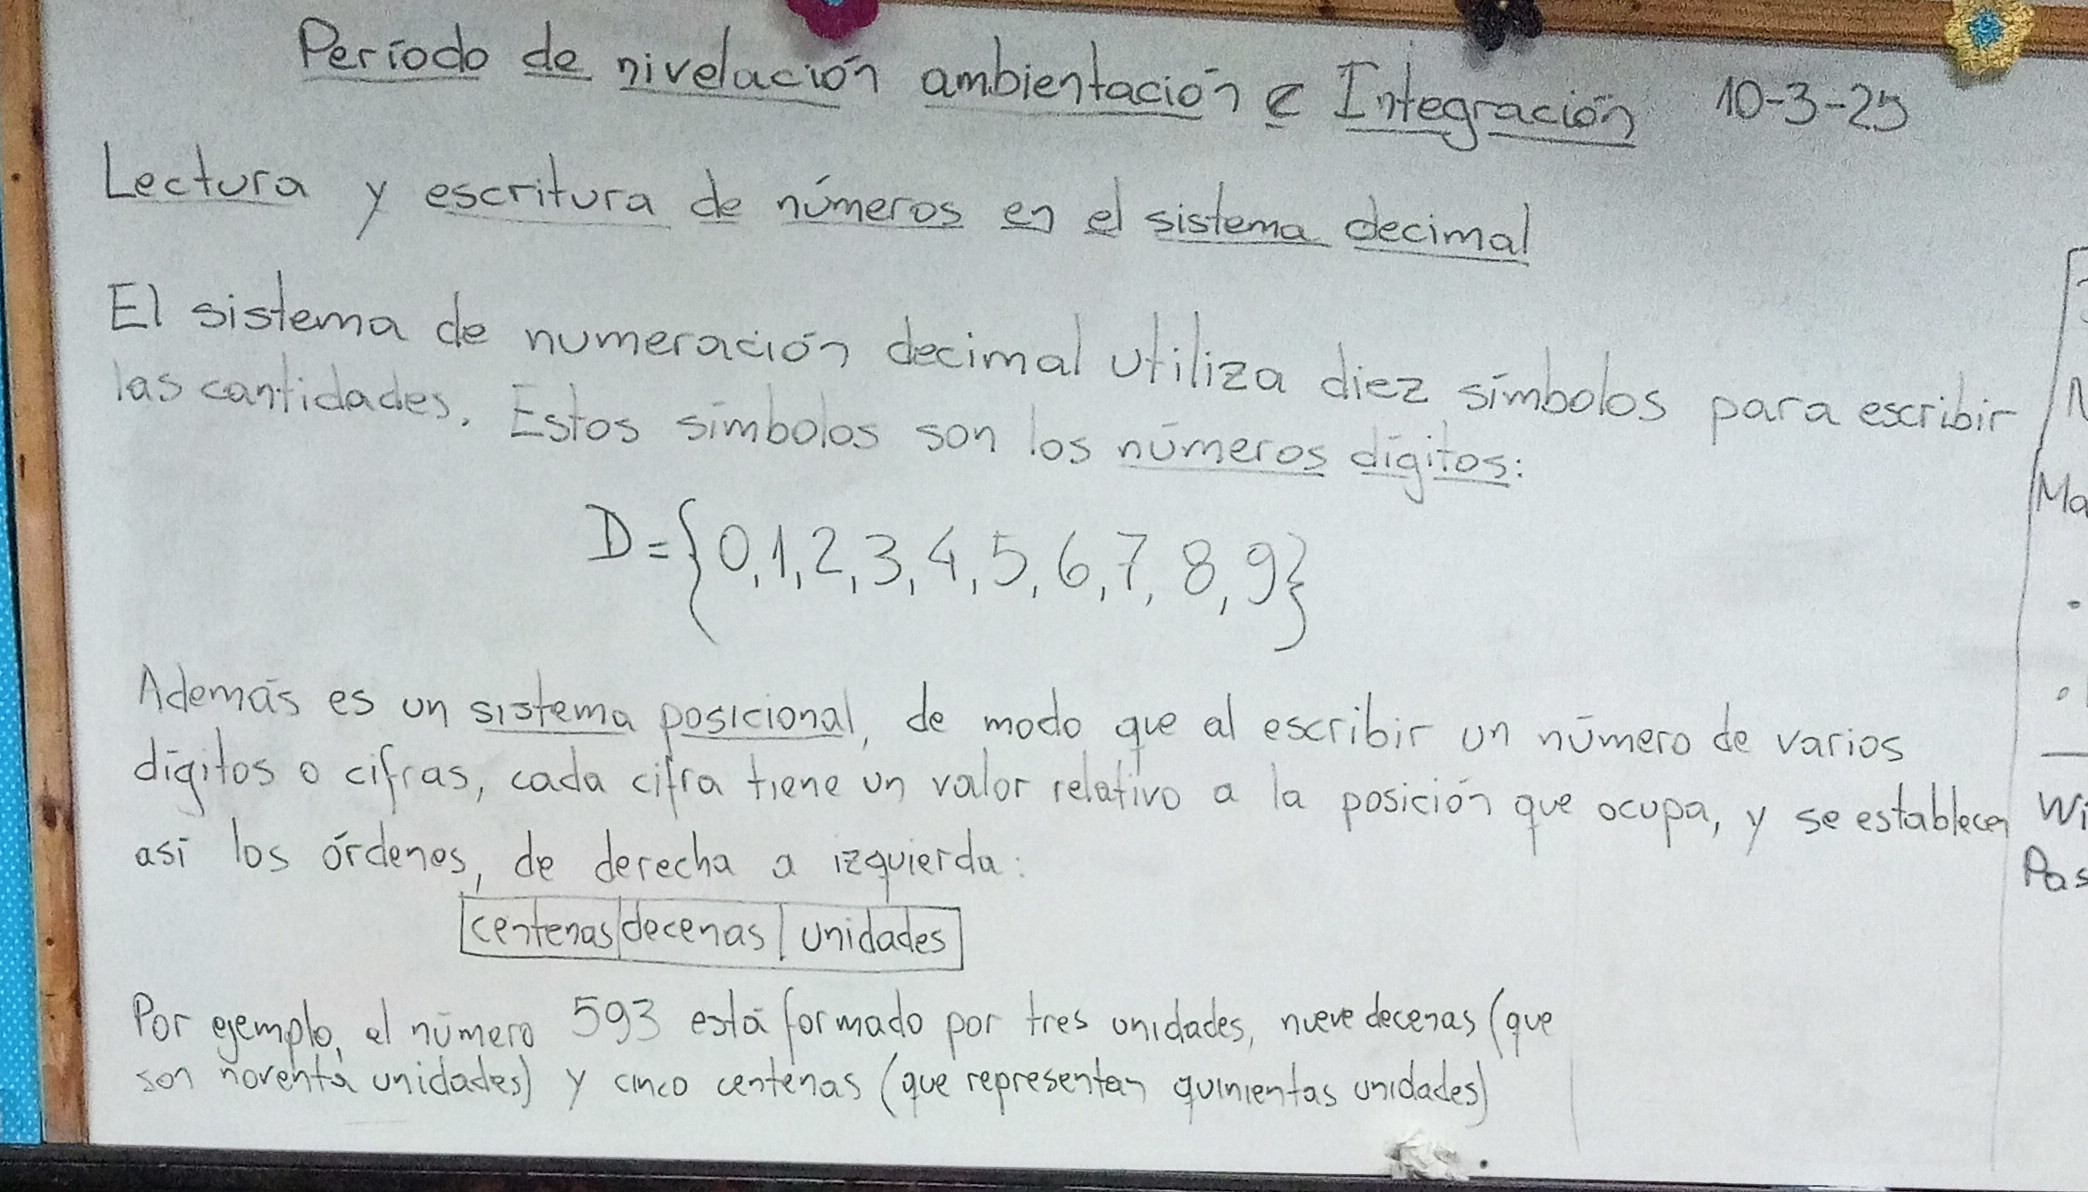 Período de nivelación ambientación e Integración 10-3-25
Lectura y escritura de números en el sistema decimal
El sistema de numeración decimal utiliza diez símbolos para escribir
las cantidades. Estos símbolos son los números dígitos:
D={0,1,2,3,4,5,6,7,8,9}
Además es un sistema posicional, de modo que al escribir un número de varios
dígitos o cifras, cada cifra tiene un valor relativo a la posición que ocupa, y se establecen
así los órdenes, de derecha a izquierda:
centenas decenas unidades
Por ejemplo, el número 593 está formado por tres unidades, nueve decenas (que
son noventa unidades) y cinco centenas (que representan quinientas unidades)
Ma
Wi
Pas